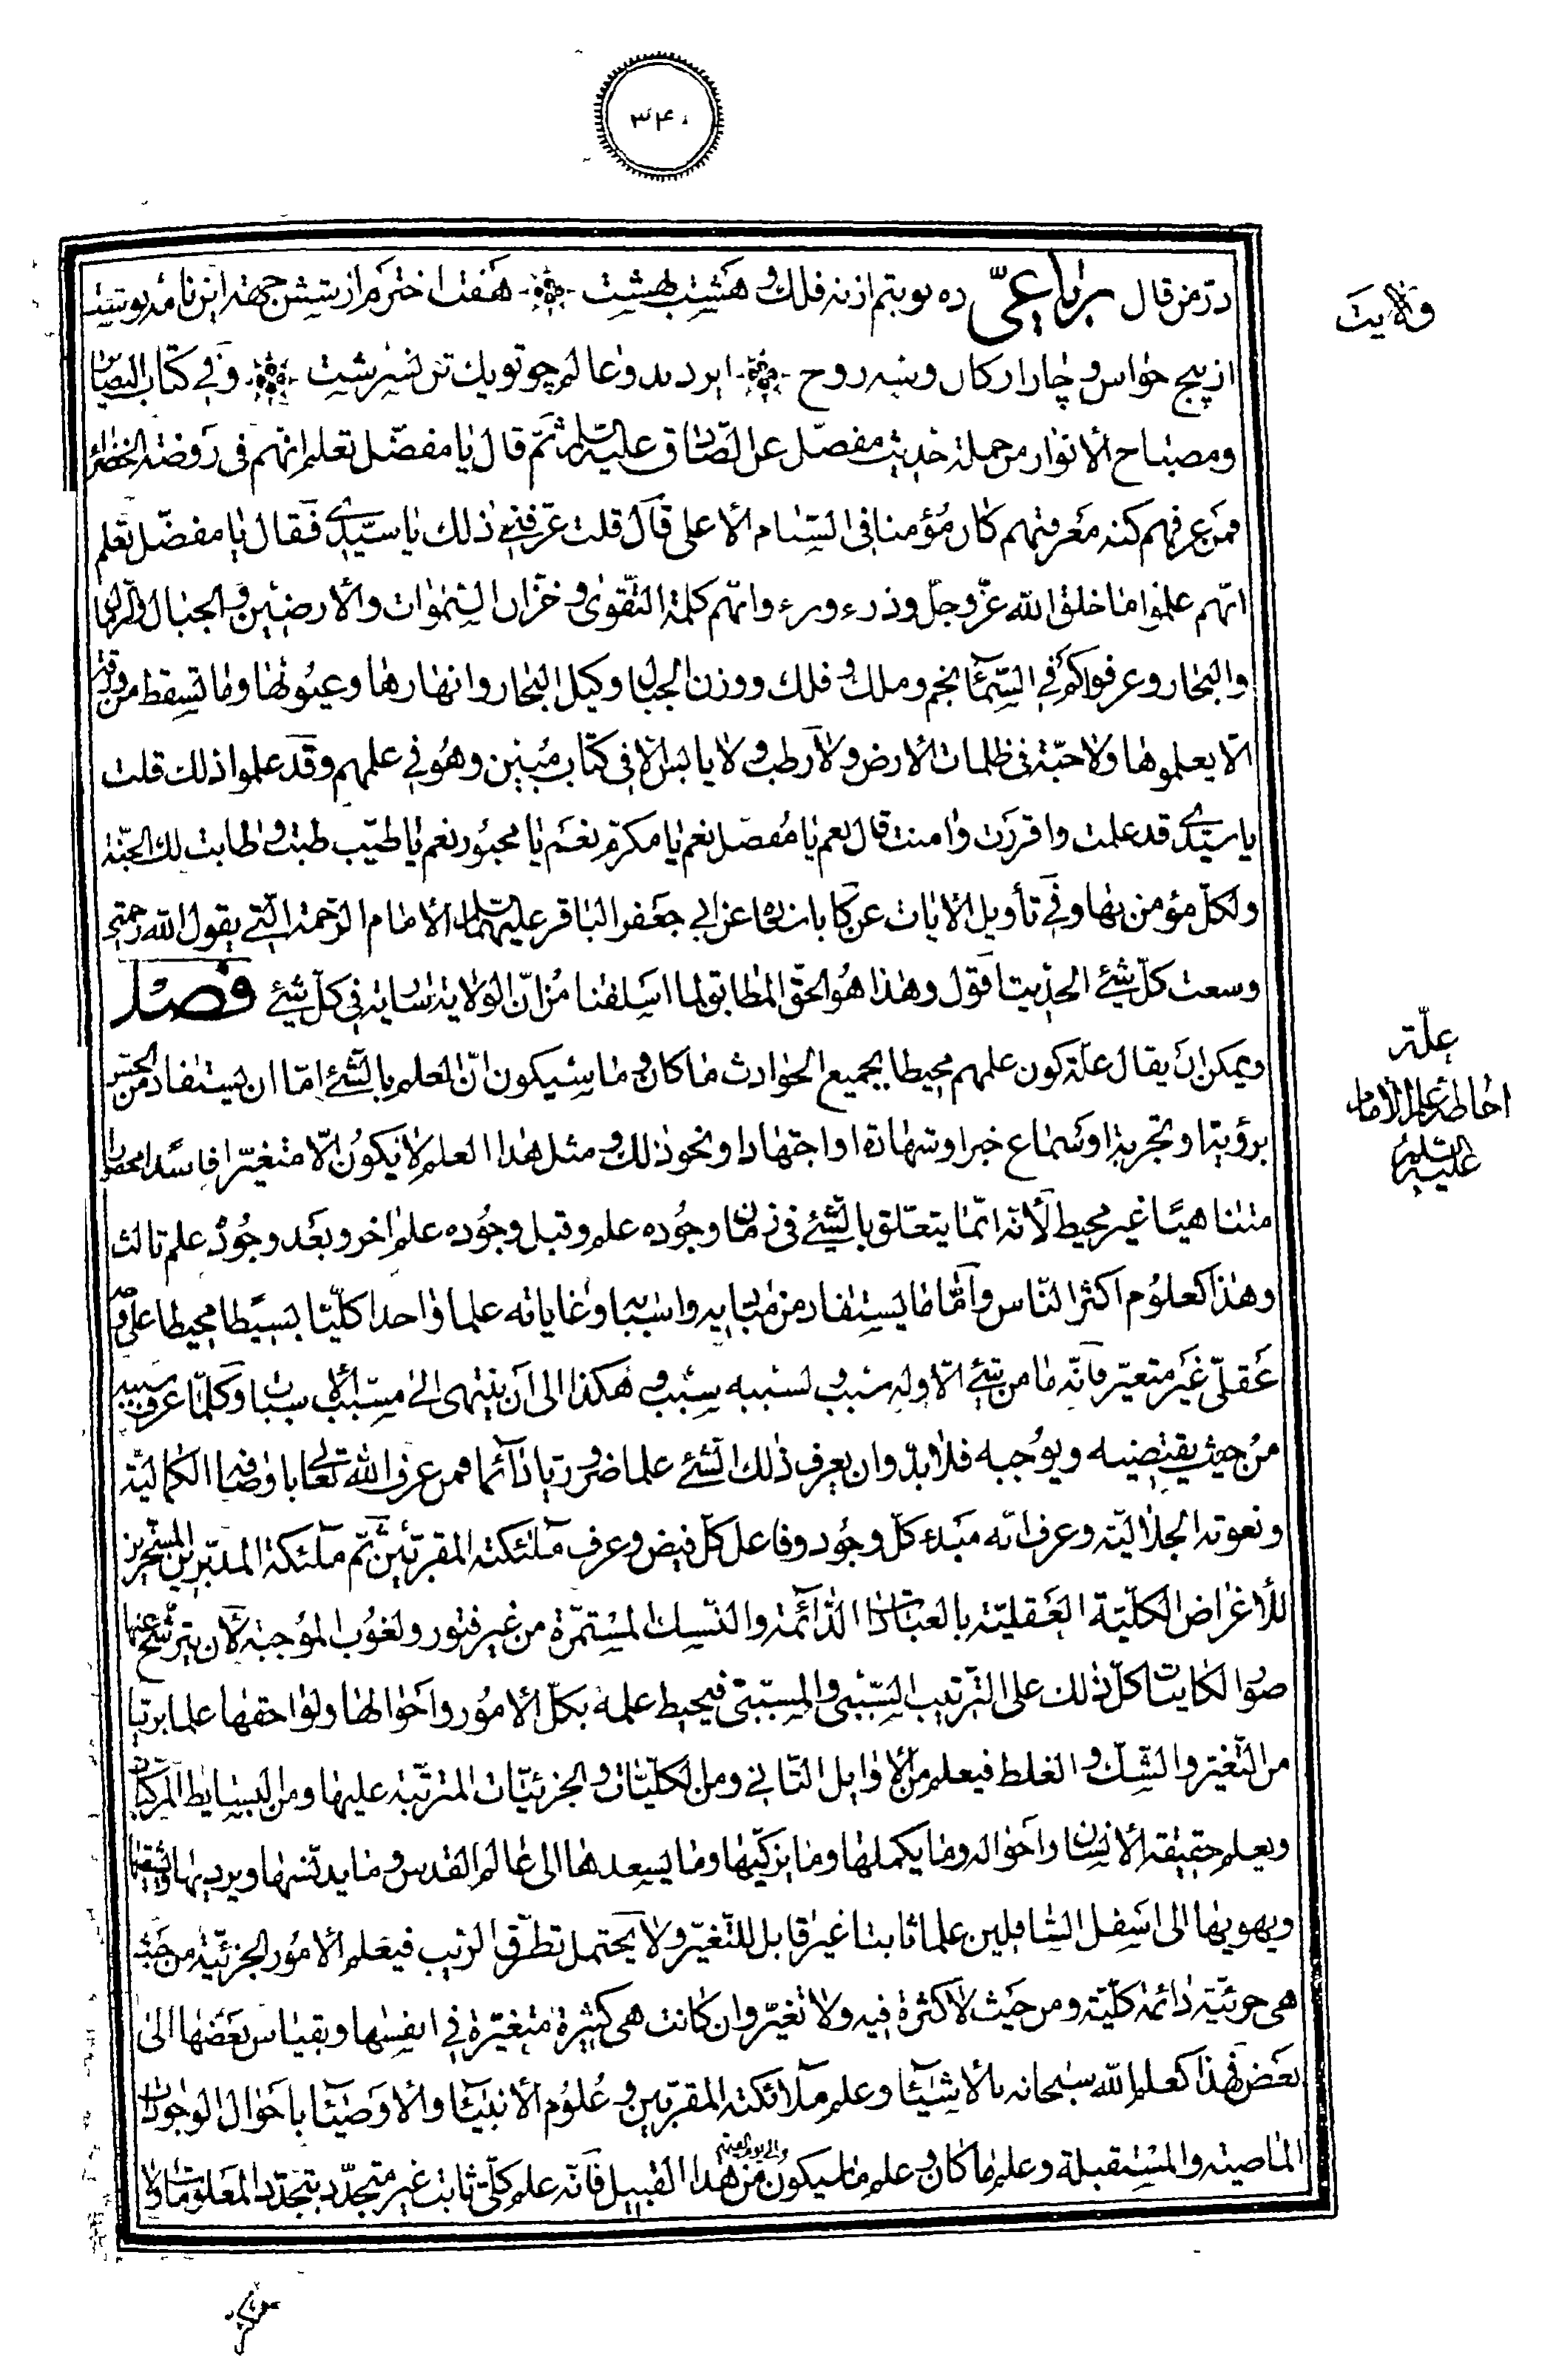 ۳۴۰
ولایت
درّ من قال رباعیّ ده بو بتم از نه فلك و هشت بهشت هفت اخترم از شش جهة این نامه نوشت
از پنج حواس و چار ارکان و سه روح ایزد بدو عالم چو تو یك تن نسرشت وفی کتاب البصائر
ومصباح الأنوار من جملة حدیث مفصّل عن الصّادق علیه السّلم ثمّ قال یا مفضّل تعلم انّهم فی روضة الخضرآء
فمن عرفهم کنه معرفتهم کان مؤمنا فی السّنام الأعلی قال قلت عرّفنی ذلك یا سیّدی فقال یا مفضّل تعلم
انّهم علموا ما خلق الله عزّ وجلّ وذرء وبرء وانّهم کلمة التّقوی وخزّان السّموات والأرضین والجبال والرّمال
والبحار وعرفوا کم فی السّمآء نجم وملك وفلك ووزن الجبال وکیل البحار وانهارها وعیونها وما تسقط من ورقة
الّا یعلموها ولا حبّة فی ظلمات الأرض ولا رطب ولا یابس الّا فی کتاب مبین وهو فی علمهم وقد علموا ذلك قلت
یا سیّدی قد علمت واقررت وامنت قال نعم یا مفضّل نعم یا مکرّم نعم یا محبور نعم یا طیّب طبت وطابت لك الجنّة
ولکلّ مؤمن بها وفی تأویل الأیات عن کا باسناده عن ابی جعفر الباقر علیهما السلم الأمام الرّحمة الّتی یقول الله ورحمتی
وسعت کلّ شیئ الحدیث اقول وهذا هو الحقّ المطابق لما اسلفنا من انّ الولایة ساریة فی کلّ شیئ فصل
علّة
احاطة علم الأمام
علیه السلم
ویمکن ان یقال علّة کون علمهم محیطا بجمیع الحوادث ما کان وما سیکون انّ العلم بالشّیئ امّا ان یستفاد من الحسّ
برؤیة او تجربة او سماع خبر او شهادة او اجتهاد او نحو ذلك ومثل هذا العلم لا یکون الّا متغیّرا فاسدا محصورا
متناهیا غیر محیط لأنّه انّما یتعلّق بالشّیئ فی زمان وجوده علم وقبل وجوده علم اخر وبعد وجوده علم ثالث
وهذا کعلوم اکثر النّاس وامّا ما یستفاد من مبادیه واسبابه وغایاته علما واحدا کلّیّا بسیطا محیطا علی وجه
عقلیّ غیر متغیّر فانّه ما من شیئ الّا وله سبب ولسببه سبب وهکذا الی ان ینتهی الی مسبّب الأسباب وکلّما عرف سببه
من حیث یقتضیه ویوجبه فلابدّ وان یعرف ذلك الشّیئ علما ضروریّا دآئما فمن عرف الله تعالی باوصافه الکمالیّة
ونعوته الجلالیّة وعرف انّه مبدء کلّ وجود وفاعل کلّ فیض وعرف ملئکته المقرّبین ثمّ ملئکة المدبّرین المسخّرین
للأغراض الکلّیّة العقلیّة بالعبادات الدّآئمة والنّسك المستمرّة من غیر فتور ولغوب الموجبة لأن یترشّح عنها
صور الکاینات کلّ ذلك علی التّرتیب السّببی والمسبّبی فیحیط علمه بکلّ الأمور واحوالها ولواحقها علما بریّا
من التّغیّر والشّك والغلط فیعلم من الأوایل الثّوانی ومن الکلّیّات والجزئیّات المترتّبة علیها ومن البسایط المرکّبات
ویعلم حقیقة الأنسان واحواله وما یکملها وما یزکّیها وما یسعدها الی عالم القدس وما یدنّسها ویردیها ویشقیها
ویهویها الی اسفل السّافلین علما ثابتا غیر قابل للتّغیّر ولا یحتمل تطرّق الرّیب فیعلم الأمور الجزئیّة من حیث
هی جزئیّة دائمة کلّیّة ومن حیث لا کثرة فیه ولا تغیّر وان کانت هی کثیرة متغیّرة فی انفسها وبقیاس بعضها الی
بعض فهذا کعلم الله سبحانه بالأشیآء وعلم ملآئکته المقرّبین وعلوم الأنبیآء والأوصیآء باحوال الموجودات
الماضیة والمستقبلة وعلم ما کان وعلم ما سیکون والی یوم القیمة من هذا القبیل فانّه علم کلّیّ ثابت غیر متجدّد بتجدّد المعلومات ولا